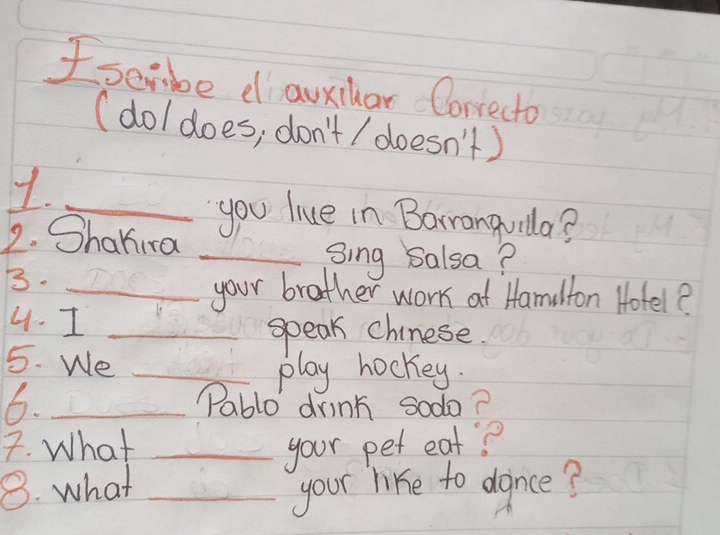 Escribe el auxiliar Correcto
(do/does; don't/doesn't)
1. ______ you live in Barranquilla?
2. Shakira ______ sing salsa?
3. ______ your brother work at Hamilton Hotel?
4. I ______ speak chinese.
5. We ______ play hockey.
6. ______ Pablo drink soda?
7. What ______ your pet eat?
8. What ______ your like to dance?